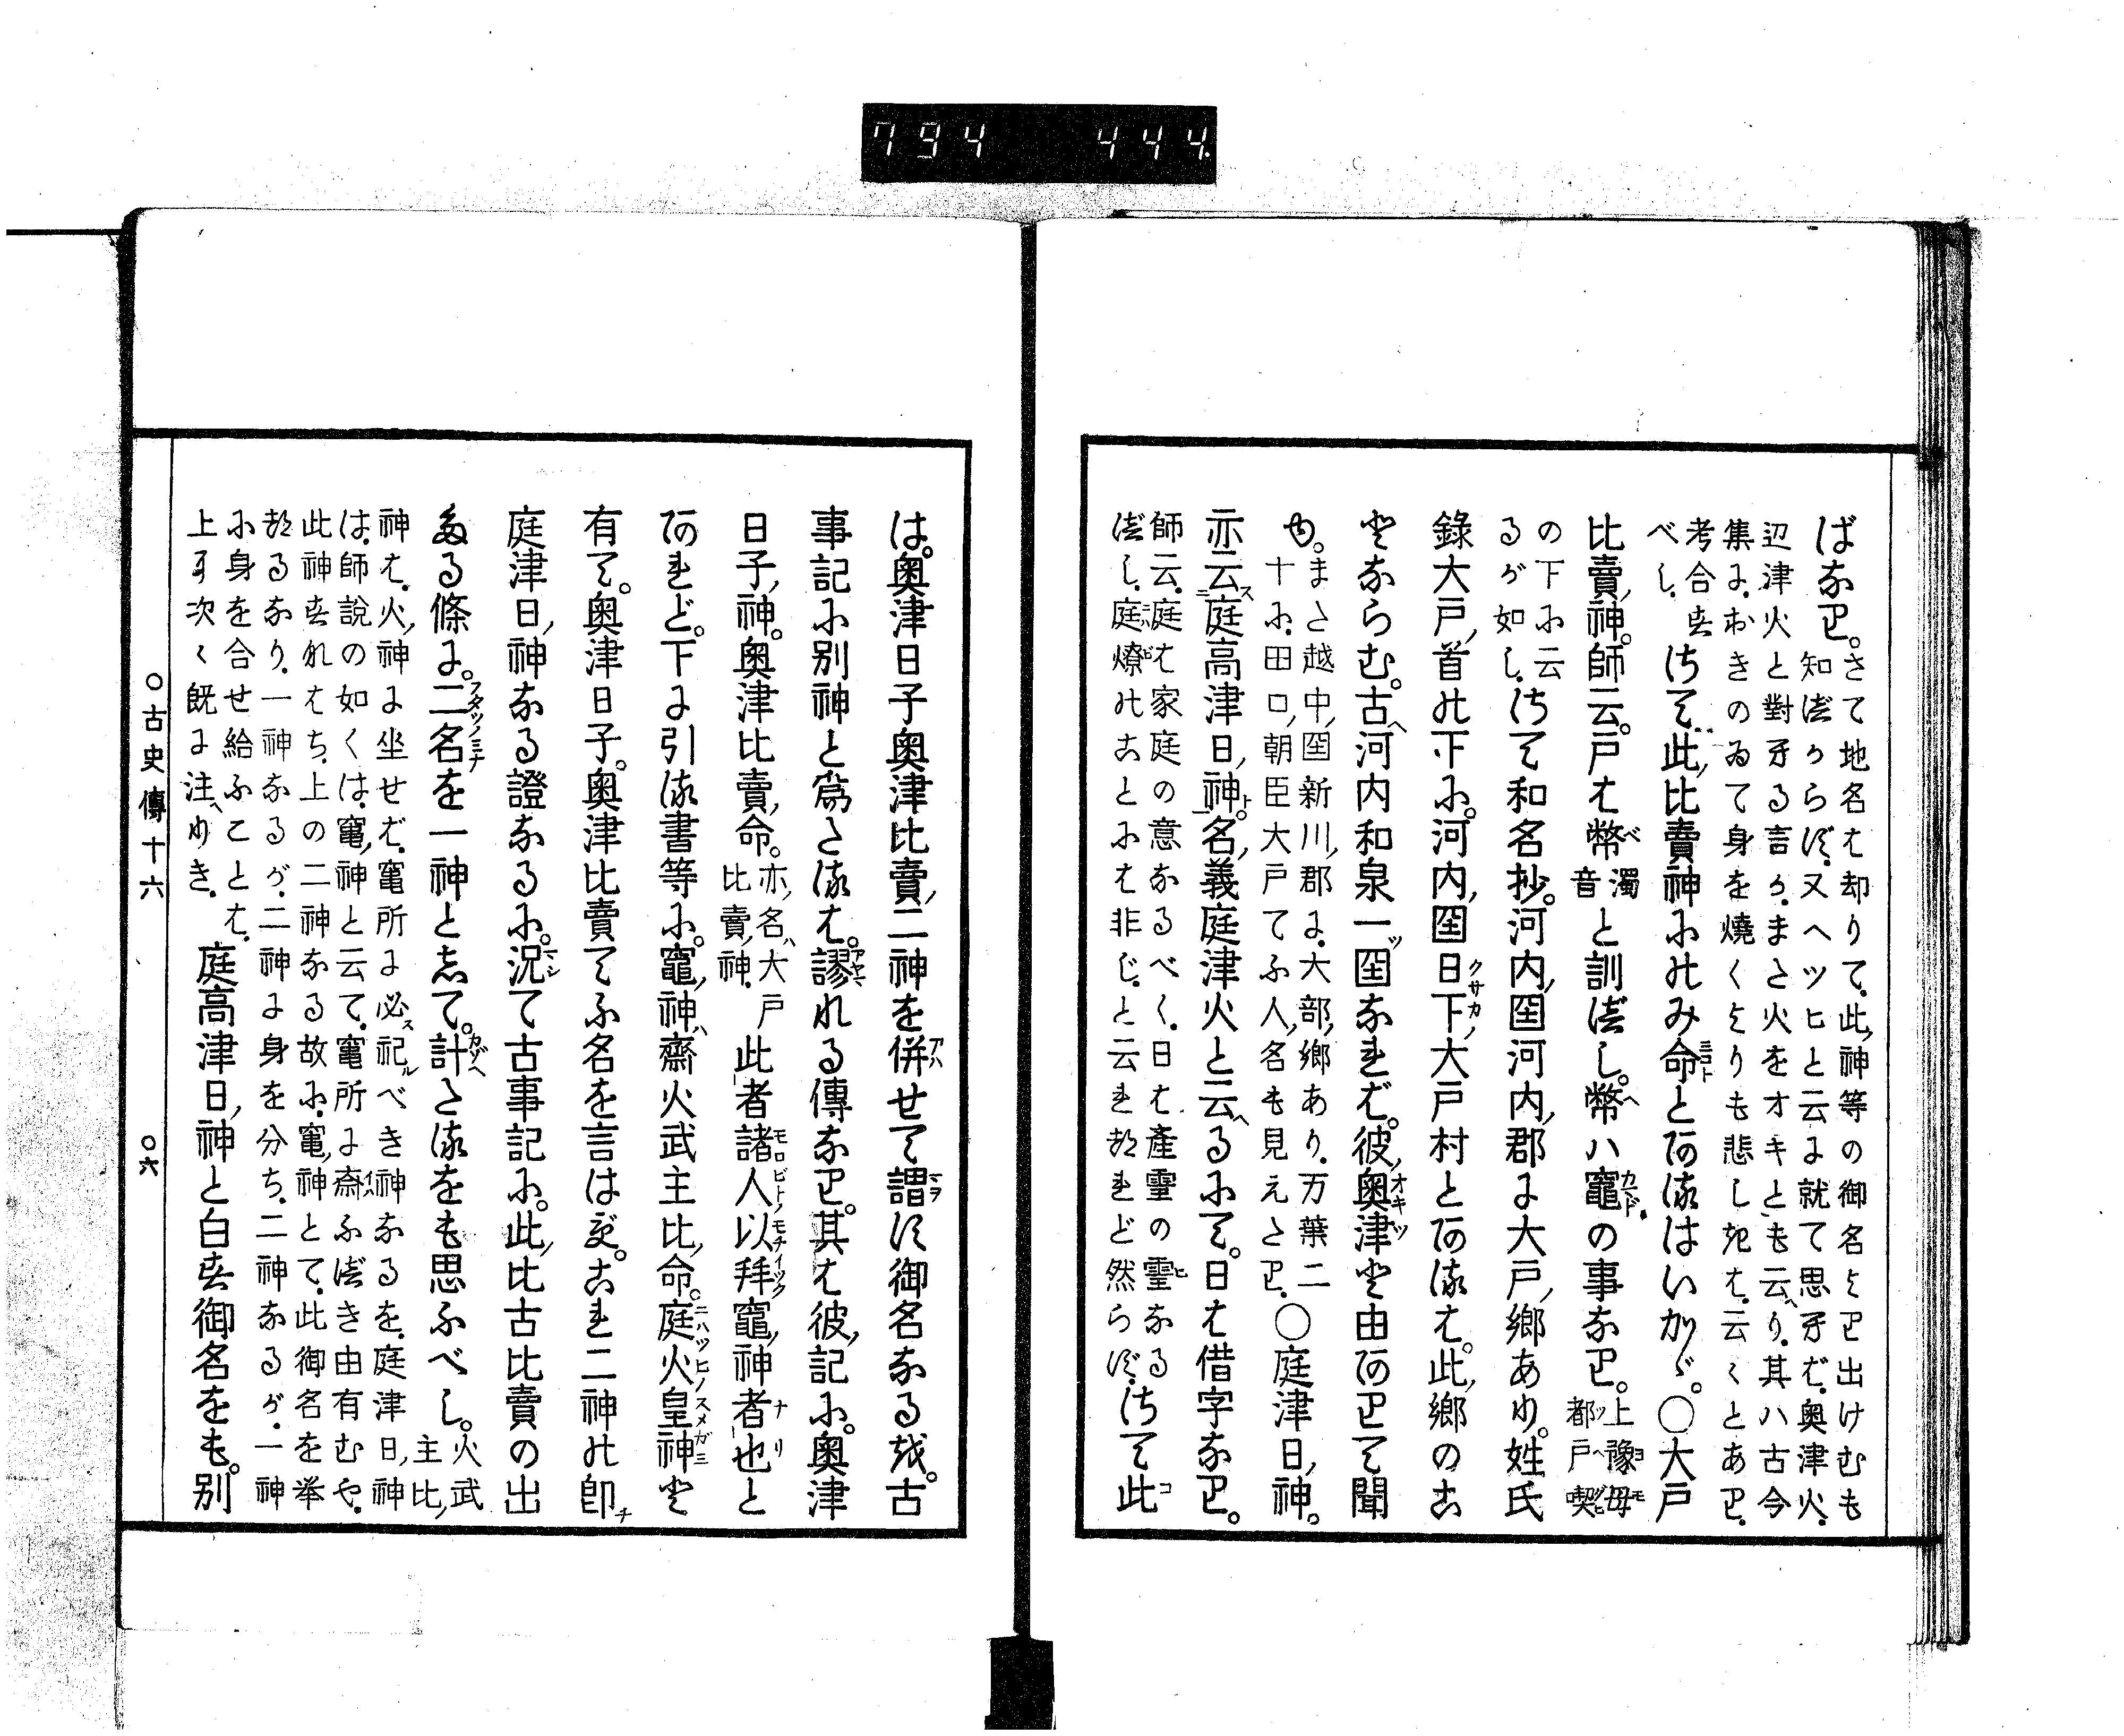 794 444.
ばなり。さて地名は却りて、此神等の御名より出けむも
知べからず、又ヘツヒと云に就て思へば、奥津火、
辺津火と對へる言か、また火をオキとも云り、其ハ古今
集に、おきのゐて身を燒くよりも悲しきは、云々とあり、
考合す
べし、
さて此比賣神にのみ命とあるはいかゞ。○大戸
比賣神。師云。戸は幣濁音と訓べし。幣ハ竈の事なり。上豫母都戸喫
の下に云
るが如し、
さて和名抄。河内國河内郡に大戸郷あり。姓氏
錄大戸首の下に。河内國日下大戸村とあるは。此郷のこ
とならむ。古河内和泉一國なれば。彼奥津と由ありて聞
ゆ。また越中國新川郡に、大部郷あり、万葉二
十に、田口朝臣大戸てふ人名も見えたり、○庭津日神。
亦云庭高津日神。名義庭津火と云るにて。日は借字なり。
師云、庭は家庭の意なるべく、日は產靈の靈なる
べし、庭燎のことには非じ、と云れされど然らず、さて此
は。奥津日子奥津比賣二神を併せて謂す御名なるを。古
事記に別神と爲たるは。謬れる傳なり。其は彼記に。奥津
日子神。奥津比賣命。亦名大戸
比賣神、此者諸人以拜竈神者也と
あれど。下に引る書等に。竈神齋火武主比命。庭火皇神と
有て。奥津日子。奥津比賣てふ名を言はず。これ二神の即
庭津日神なる證なるに。況て古事記に。此比古比賣の出
たる條に。二名を一神として。計たるをも思ふべし。火武
主比
神は、火神に坐せば、竈所に必祀べき神なるを、庭津日神
は、師說の如くは、竈神と云て、竈所に斎ふべき由有むや、
此神すなはち、上の二神なる故に、竈神とて、此御名を挙
たるなり、一神なるが、二神に身を分ち、二神なるが、一神
に身を合せ給ふことは、
上に次々既に注へりき、庭高津日神と白す御名をも。別
○古史傳十六 ○六